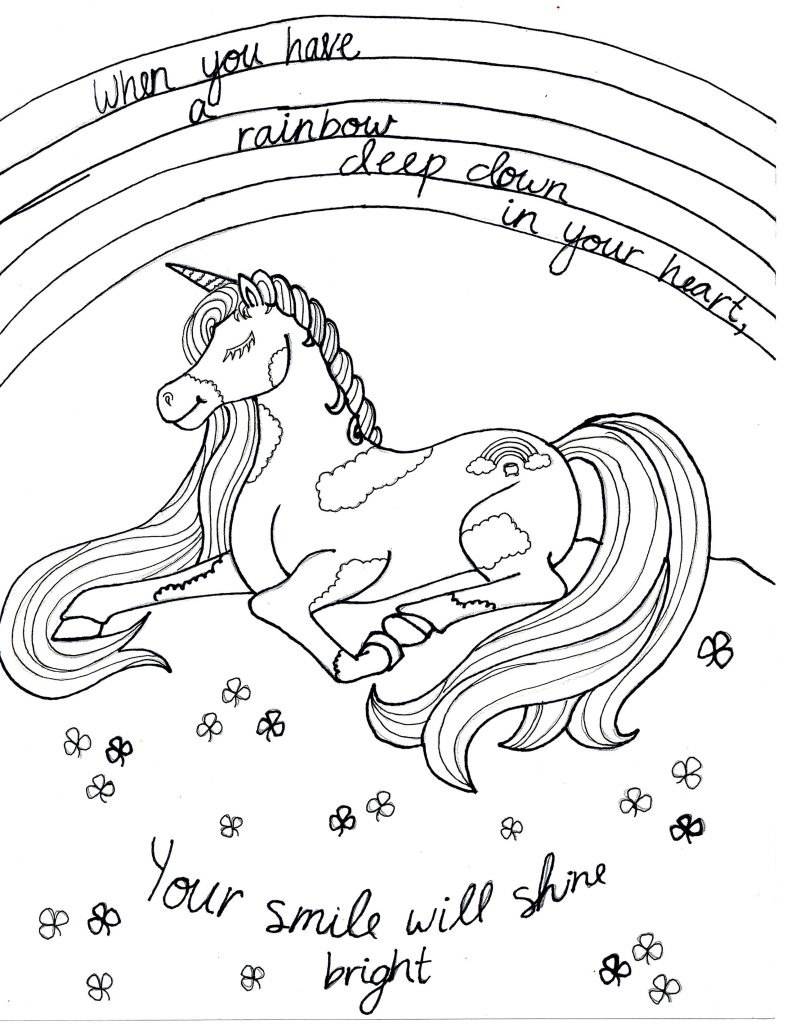 When you have
a
rainbow
deep down
in your heart,
Your smile will shine
bright